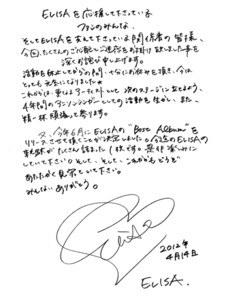 ELISAを応援して下さっている
ファンのみんな、
そしてELISAを支えて下さっている関係者の皆様、
今回、たくさんのご心配とご迷惑をお掛け致しました事を
深くお詫び申し上げます。
活動を休止してからの間、十分にお休みを頂き、今は
とっても元気になりました。
これからは、更なるアーティストとして次のステージに立てるよう、
4年間のアニソンシンガーとしての活動を生かし、また
精一杯頑張って参ります。
又、今年6月にELISAの"Best Album"を
リリースさせて頂くことが決定しました。今迄のELISAの
軌跡がたくさん詰まった1枚です。是非楽しみに
していて下さい。そして、そして、これからもどうぞ
あたたかく見守って下さい。
みんないありがとう。
Elisa
2012年
4月14日
ELISA.